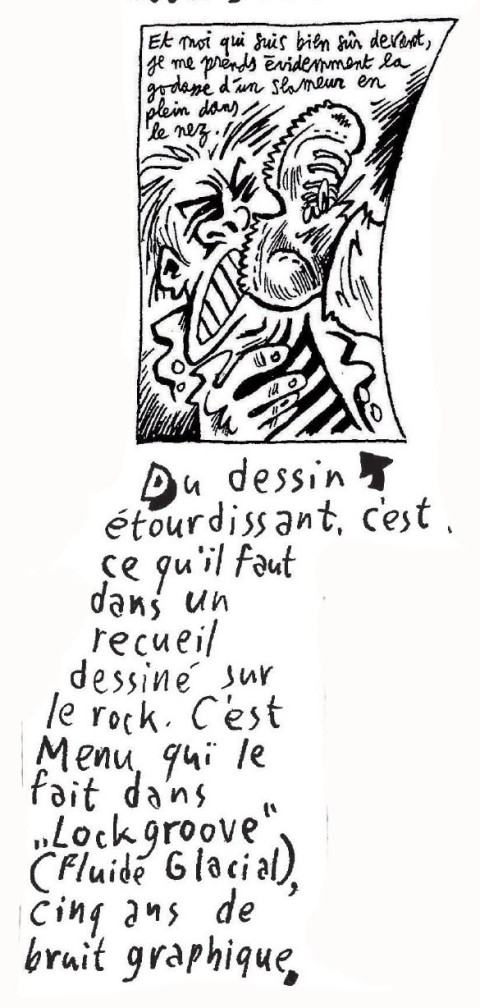 Et moi qui suis bien sûr devant,
je me prends évidemment la
godasse d'un slameur en
plein dans
le nez.
Du dessin
étourdissant, c'est
ce qu'il faut
dans un
recueil
dessiné sur
le rock. C'est
Menu qui le
fait dans
„Lock groove“
(Fluide Glacial),
cinq ans de
bruit graphique.